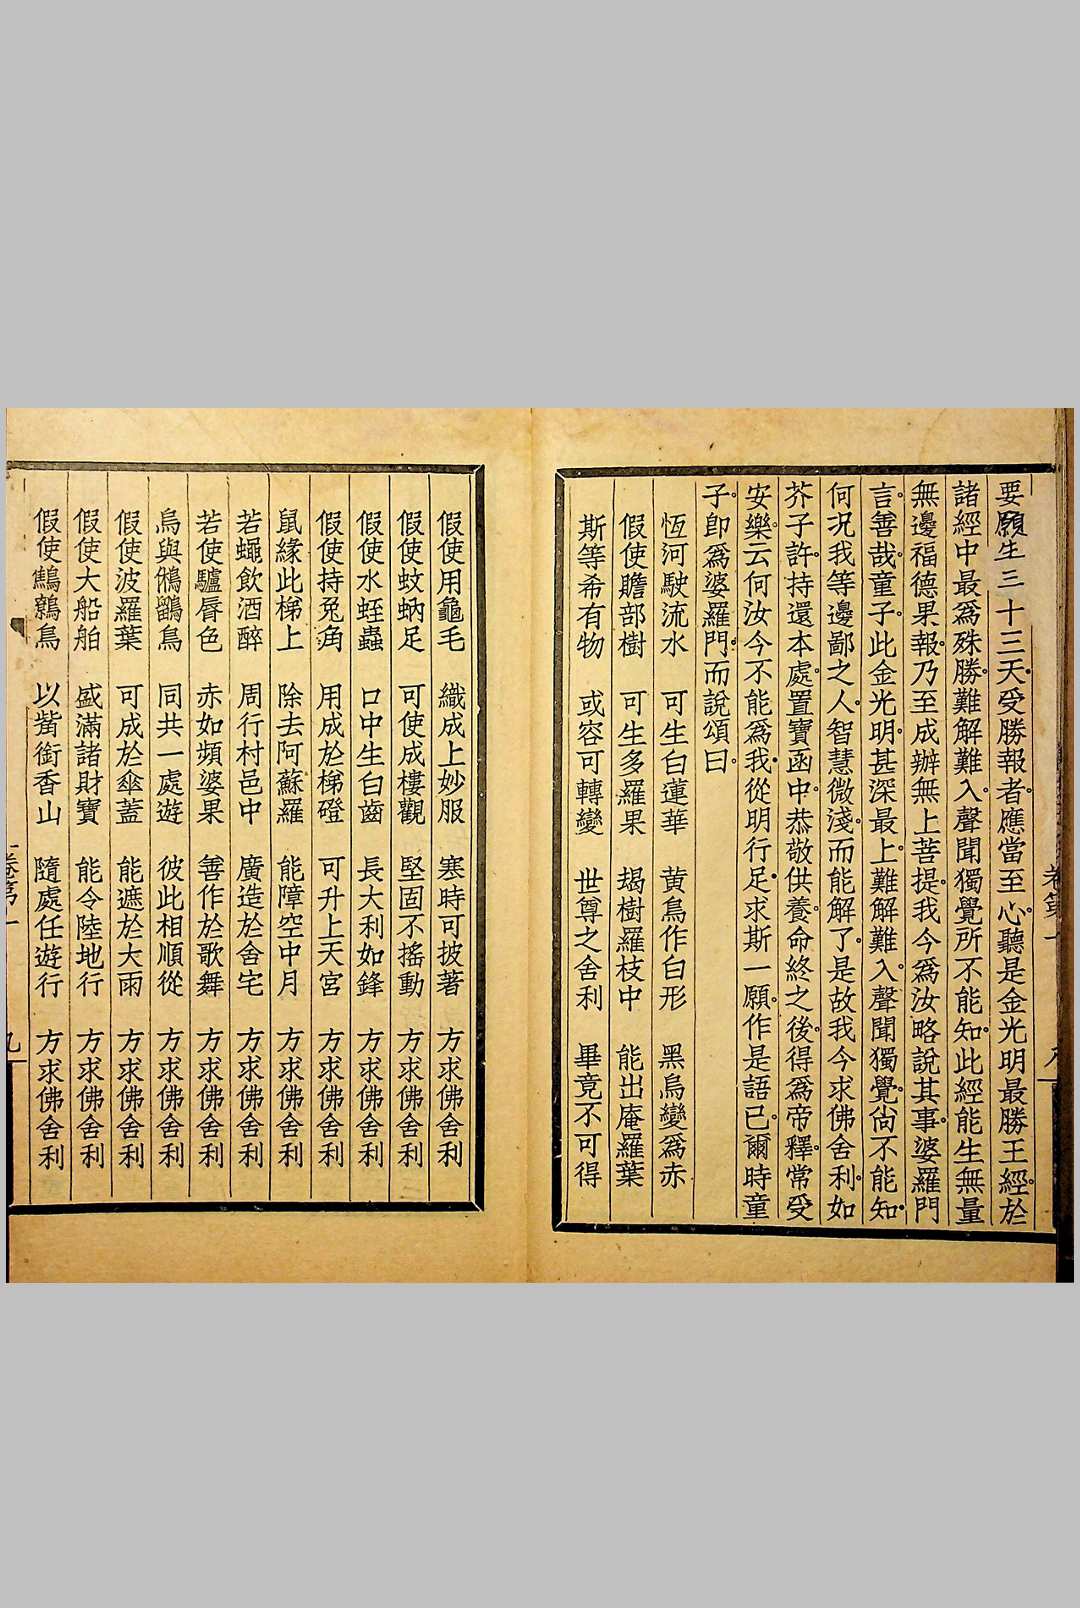 要願生三十三天。受勝報者。應當至心。聽是金光明最勝王經。於
諸經中最爲殊勝。難解難入。聲聞獨覺所不能知。此經能生無量
無邊福德果報。乃至成辦無上菩提。我今爲汝略說其事。婆羅門
言。善哉童子。此金光明。甚深最上。難解難入。聲聞獨覺。尙不能知。
何况我等邊鄙之人。智慧微淺。而能解了。是故我今求佛舍利。如
芥子許。持還本處。置寶函中。恭敬供養。命終之後。得爲帝釋。常受
安樂。云何汝今不能爲我從明行足。求斯一願。作是語已。爾時童
子。即爲婆羅門。而說頌曰。
恆河駛流水　可生白蓮華　黃鳥作白形　黑烏變爲赤
假使贍部樹　可生多羅果　朅樹羅枝中　能出庵羅葉
斯等希有物　或容可轉變　世尊之舍利　畢竟不可得
假使用龜毛　織成上妙服　寒時可披著　方求佛舍利
假使蚊蚋足　可使成樓觀　堅固不搖動　方求佛舍利
假使水蛭蟲　口中生白齒　長大利如鋒　方求佛舍利
假使持兔角　用成於梯磴　可升上天宮　方求佛舍利
鼠緣此梯上　除去阿蘇羅　能障空中月　方求佛舍利
若蠅飲酒醉　周行村邑中　廣造於舍宅　方求佛舍利
若使驢脣色　赤如頻婆果　善作於歌舞　方求佛舍利
烏與鵂鶹鳥　同共一處遊　彼此相順從　方求佛舍利
假使波羅葉　可成於傘蓋　能遮於大雨　方求佛舍利
假使大船舶　盛滿諸財寶　能令陸地行　方求佛舍利
假使鷦鷯鳥　以觜銜香山　隨處任遊行　方求佛舍利
卷第一
九